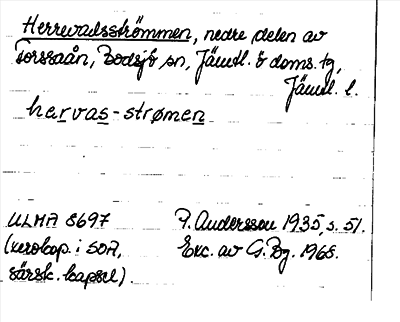 Herrevadsströmmen, nedre delen av
Torssaån, Bodsjö sn, Jämtl. ö doms. tg,
Jämtl. l.
hervas-strømen
ULMA 8697
P. Andersson 1935, s. 51.
(xerokop. i SOA,
Exc. av G. Bg. 1968.
särsk. kapsel).